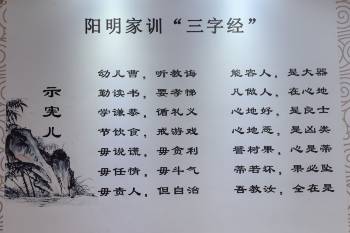 阳明家训“三字经”
示宪儿
幼儿曹，听教诲
勤读书，要孝悌
学谦恭，循礼义
节饮食，戒游戏
毋说谎，毋贪利
毋任情，毋斗气
毋责人，但自治
能容人，是大器
凡做人，在心地
心地好，是良士
心地恶，是凶类
譬树果，心是蒂
蒂若坏，果必坠
吾教汝，全在是